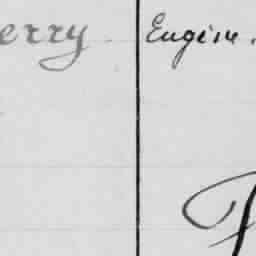 erry Eugene.